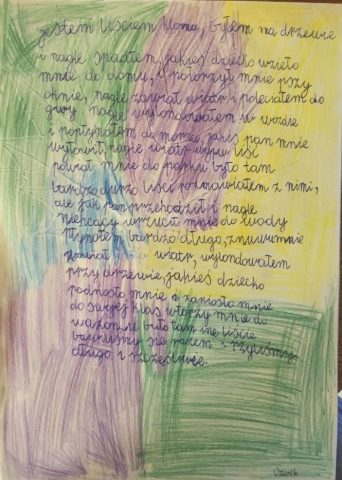 jestem liściem klonu, byłem na drzewie
i nagle spadłem, jakieś dziecko wzieło
mnie do domu, i położył mnie przy
oknie, nagle zawiał wiatr i poleciałem do
gury nagle wylondowałem w wodzie
i popłynołem do morza jakiś pan mnie
wyłowił, nagle wiatr liść
porwał mnie do parku było tam
bardzo dużo liści, rozmawiałem z nimi,
ale jak pan przehodził i nagle
niehcący wrzucił mnie do wody
Płynołem bardzo długo, znuwumnie
wiatr, wylondowałem
przy drzewie, jakieś dziecko
podnosło mnie a zaniosło mnie
do swojej klas włorzy mnie do
wazonu, było tam liście
bawiliśmy się razem i rzyliśmy
długo i szczęśliwie.